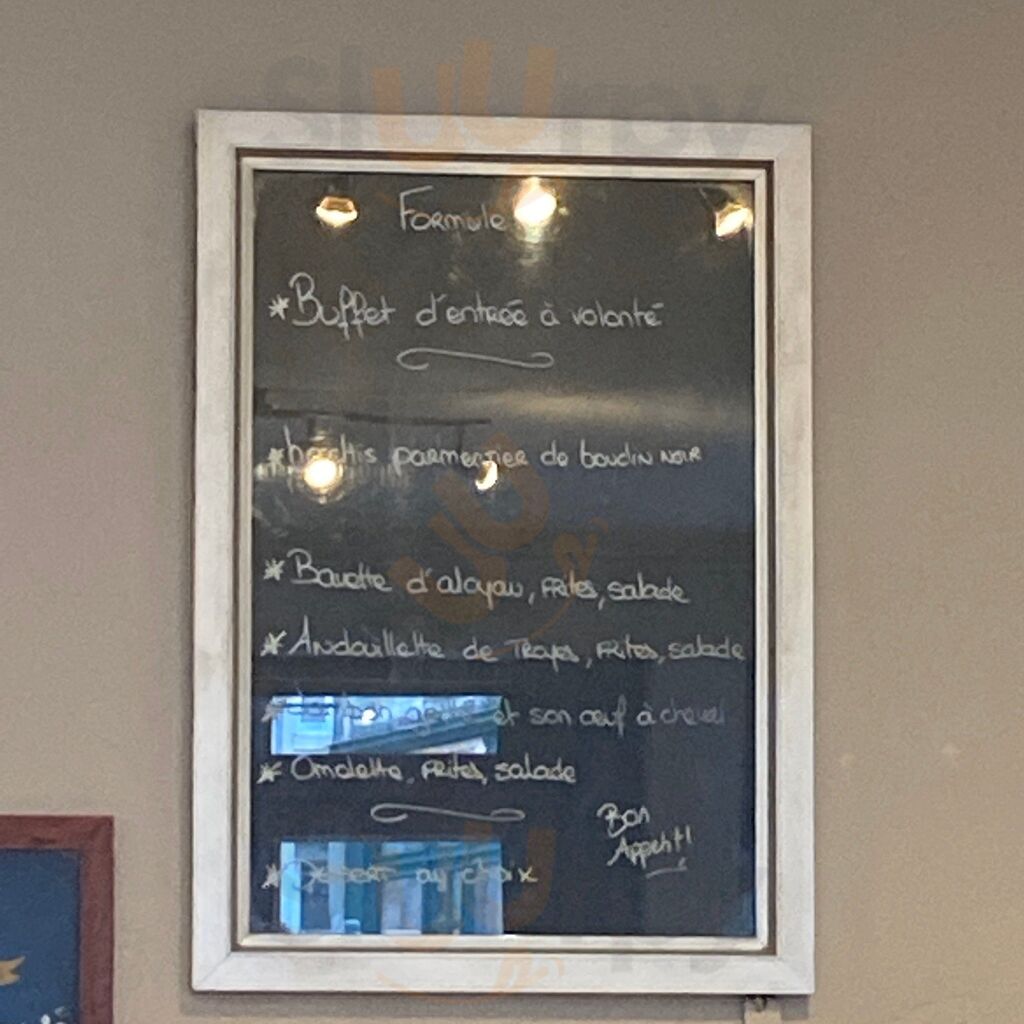 Sluurpy
Formule
*Buffet d'entrée à volonté
*hachis parmentier de boudin noir
*Bavette d'aloyau, frites, salade
*Andouillette de Troyes, frites, salade
et son œuf à cheval
*Omelette, frites, salade
Bon
Appetit!
*Dessert au choix